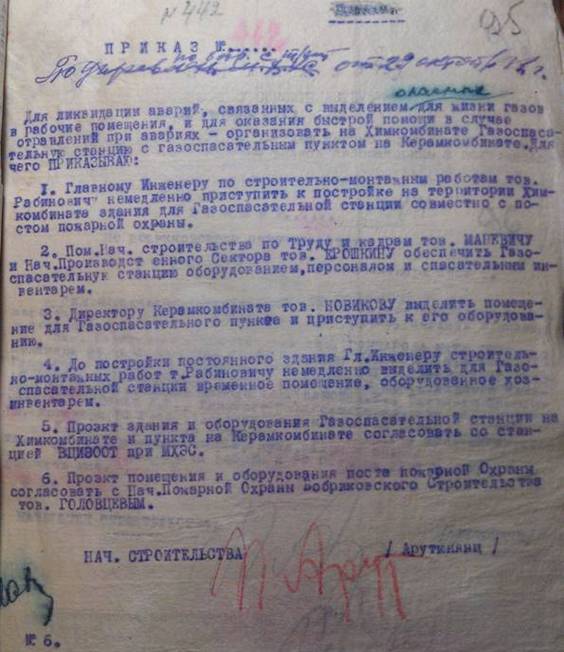 N 442
025
ПРИКАЗ №......
от 29 октябр
опасных
Для ликвидации аварий, связанных с выделением для жизни газов
в рабочие помещения, и для оказания быстрой помощи в случае
отравлений при авариях - организовать на Химкомбинате Газоспаса-
тельную станцию с газоспасательным пунктом на Керамкомбинате.Для
чего ПРИКАЗЫВАЮ:
1. Главному Инженеру по строительно-монтажным работам тов.
Рабинович немедленно приступить к постройке на территории Хим-
комбината здания для Газоспасательной станции совместно с по-
стом пожарной охраны.
2. Пом.Нач. строительства по Труду и кадрам тов. МАРКЕВИЧУ
и Нач.Производст енного Сектора тов. ЕРОШКИНУ обеспечить Газо-
спасательную станцию оборудованием,персоналом и спасательным ин-
вентарем.
3. Директору Керамкомбината тов. НОВИКОВУ выделить помеще-
ние для Газоспасательного пункта и приступить к его оборудова-
нию.
4. До постройки постоянного здания Гл.Инженеру строитель-
но-монтажных работ т.Рабиновичу немедленно выделить для Газо-
спасательной станции временное помещение, оборудованное хоз-
инвентарем.
5. Проэкт здания и оборудования Газоспасательной станции на
Химкомбинате и пункта на Керамкомбинате согласовать со стан-
цией ВЦИЗООТ при МХЭС.
6. Проэкт помещения и оборудования поста пожарной Охраны
согласовать с Нач.Пожарной Охраны Бобриковского Строительства
тов. ГОЛОВЦЕВЫМ.
НАЧ. СТРОИТЕЛЬСТВА / Арутюнянц /
№ 6.